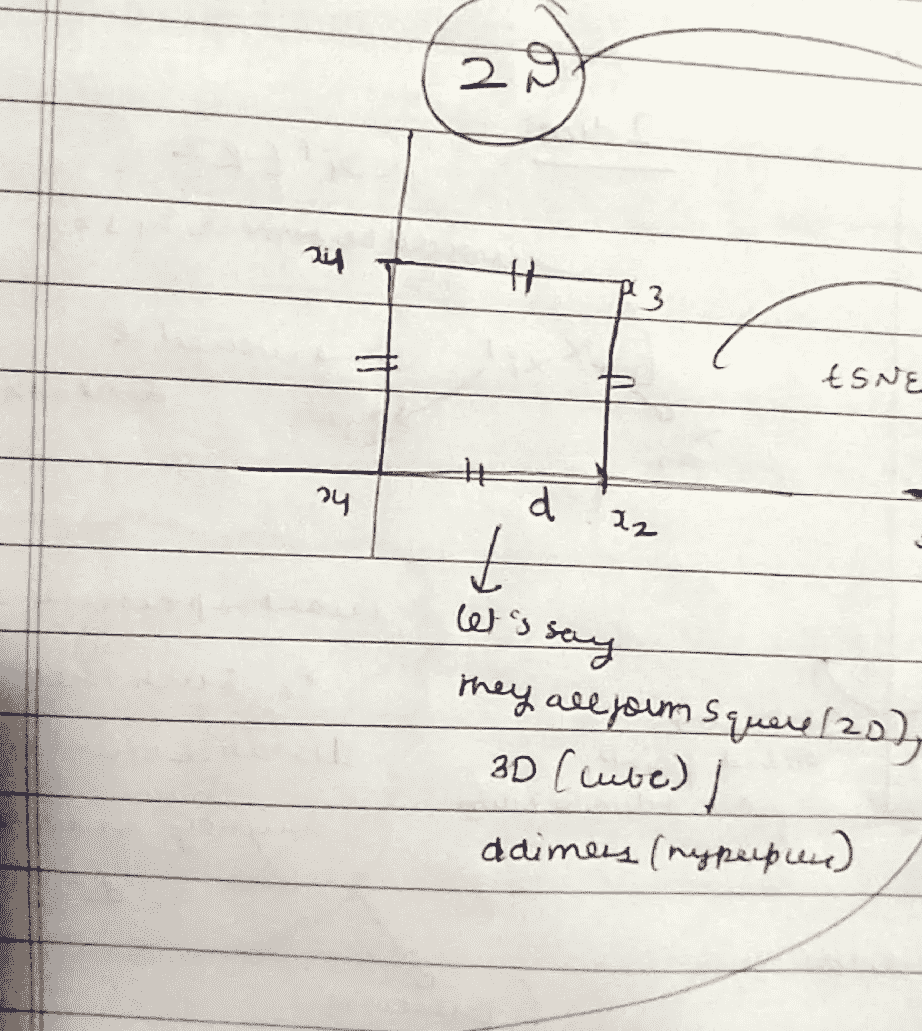 2D
x4
x3
tSNE
x1
d
x2
let's say
they all form square (2D),
3D (cube)
d dimens (hypercube)